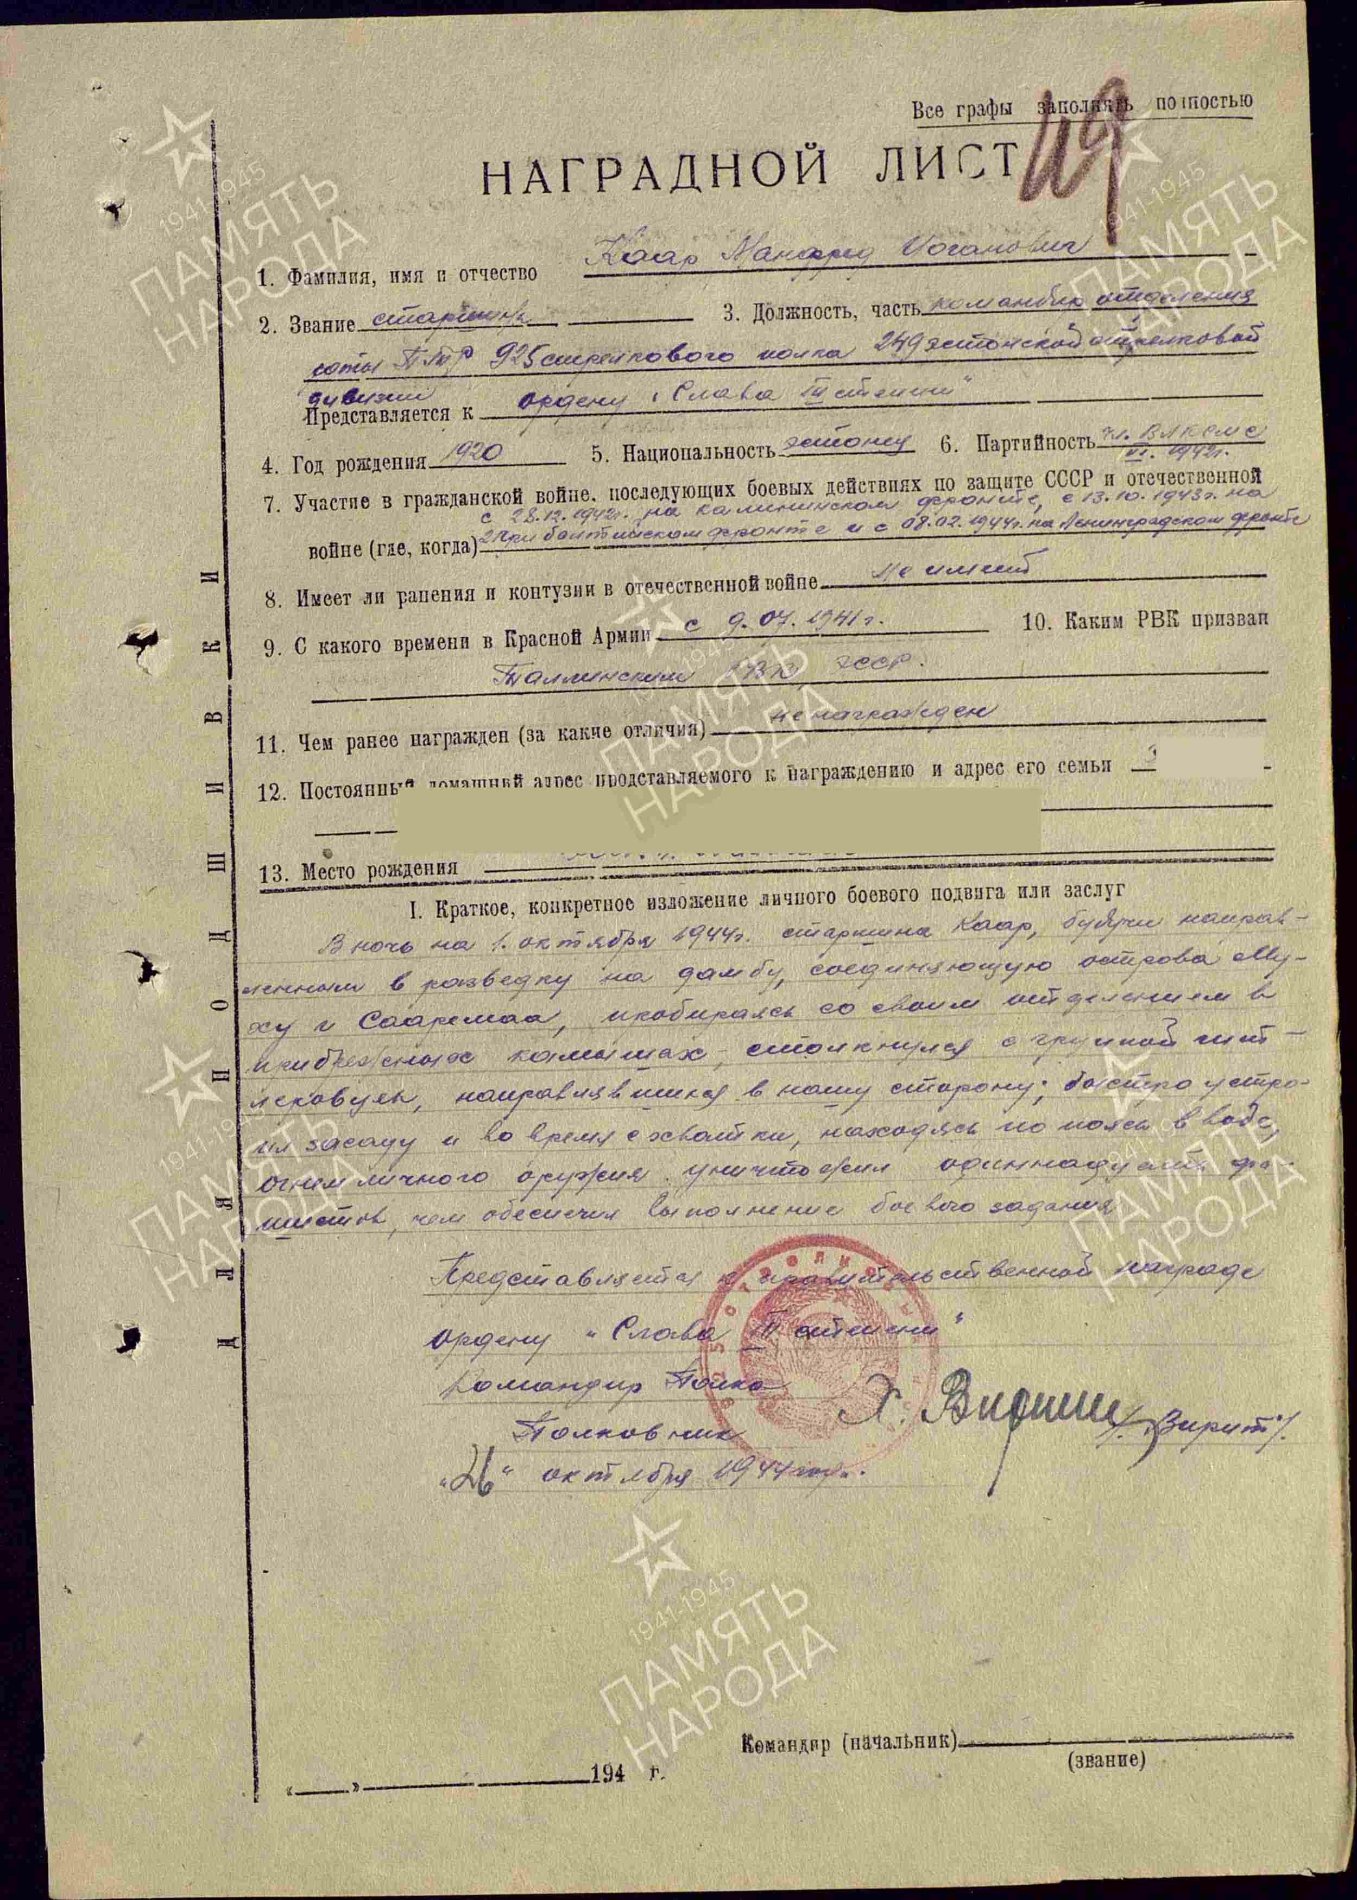 Все графы заполнять полностью
49
НАГРАДНОЙ ЛИСТ
1. Фамилия, имя и отчество Каар Манфред Иоганович
2. Звание старшина 3. Должность, часть командир отделения
роты ПТР 925 стрелкового полка 249 эстонской стрелковой
дивизии
Представляется к ордену „Слава III степени"
4. Год рождения 1920 5. Национальность эстонец 6. Партийность чл. ВЛКСМ с
VI. 1942г.
7. Участие в гражданской войне, последующих боевых действиях по защите СССР и отечественной
с 28.12.1942г. на калининском фронте, с 13.10.1943г. на
войне (где, когда) 2 Прибалтийском фронте и с 08.02.1944г. на Ленинградском фронте
8. Имеет ли ранения и контузии в отечественной войне не имеет
9. С какого времени в Красной Армии с 9.07.1941г. 10. Каким РВК призван
Таллинским РВК, ЭССР.
11. Чем ранее награжден (за какие отличия) не награжден
12. Постоянный домашний адрес представляемого к награждению и адрес его семьи
13. Место рождения
I. Краткое, конкретное изложение личного боевого подвига или заслуг
В ночь на 1. октября 1944г. старшина Каар, будучи направ-
ленным в разведку на дамбу, соединяющую острова Му-
ху и Сааремаа, пробираясь со своим отделением в
прибрежных камышах, столкнулся с группой гит-
леровцев, направлявшихся в нашу сторону; быстро устро-
ил засаду и во время схватки, находясь по пояс в воде,
огнем личного оружия уничтожил одиннадцать фа-
шистов, чем обеспечил выполнение боевого задания.
Представляется к правительственной награде
ордену „Слава III степени"
Командир Полка
Полковник Х. Вирит /Вирит/.
„26" октября 1944 года.
Командир (начальник)
(звание)
«    »    194  г.
ДЛЯ ПОДШИВКИ
1941-1945
ПАМЯТЬ
НАРОДА
1941-1945
ПАМЯТЬ
НАРОДА
1941-1945
ПАМЯТЬ
НАРОДА
1941-1945
ПАМЯТЬ
НАРОДА
1941-1945
ПАМЯТЬ
НАРОДА
1941-1945
ПАМЯТЬ
НАРОДА